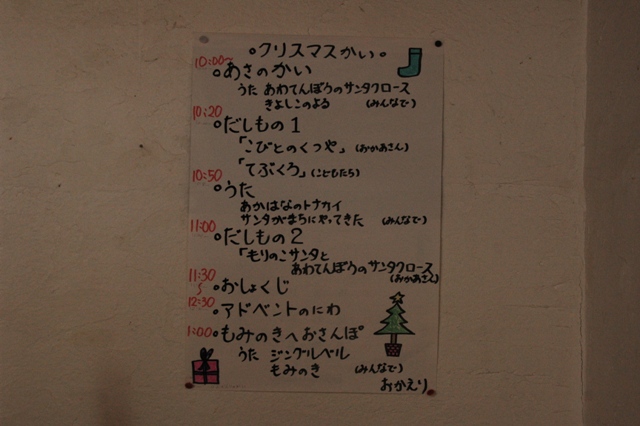 。クリスマスかい。
10:00〜
。あさのかい
うた あわてんぼうのサンタクロース
きよしこのよる (みんなで)
10:20
。だしもの1
「こびとのくつや」(おかあさん)
「てぶくろ」(こどもたち)
10:50
。うた
あかはなのトナカイ
サンタがまちにやってきた (みんなで)
11:00
。だしもの2
「もりのこサンタと
あわてんぼうのサンタクロース
(おかあさん)
11:30
〜 。おしょくじ
12:30
。アドベントのにわ
1:00 。もみのきへおさんぽ
うた ジングルベル
もみのき (みんなで)
おかえり